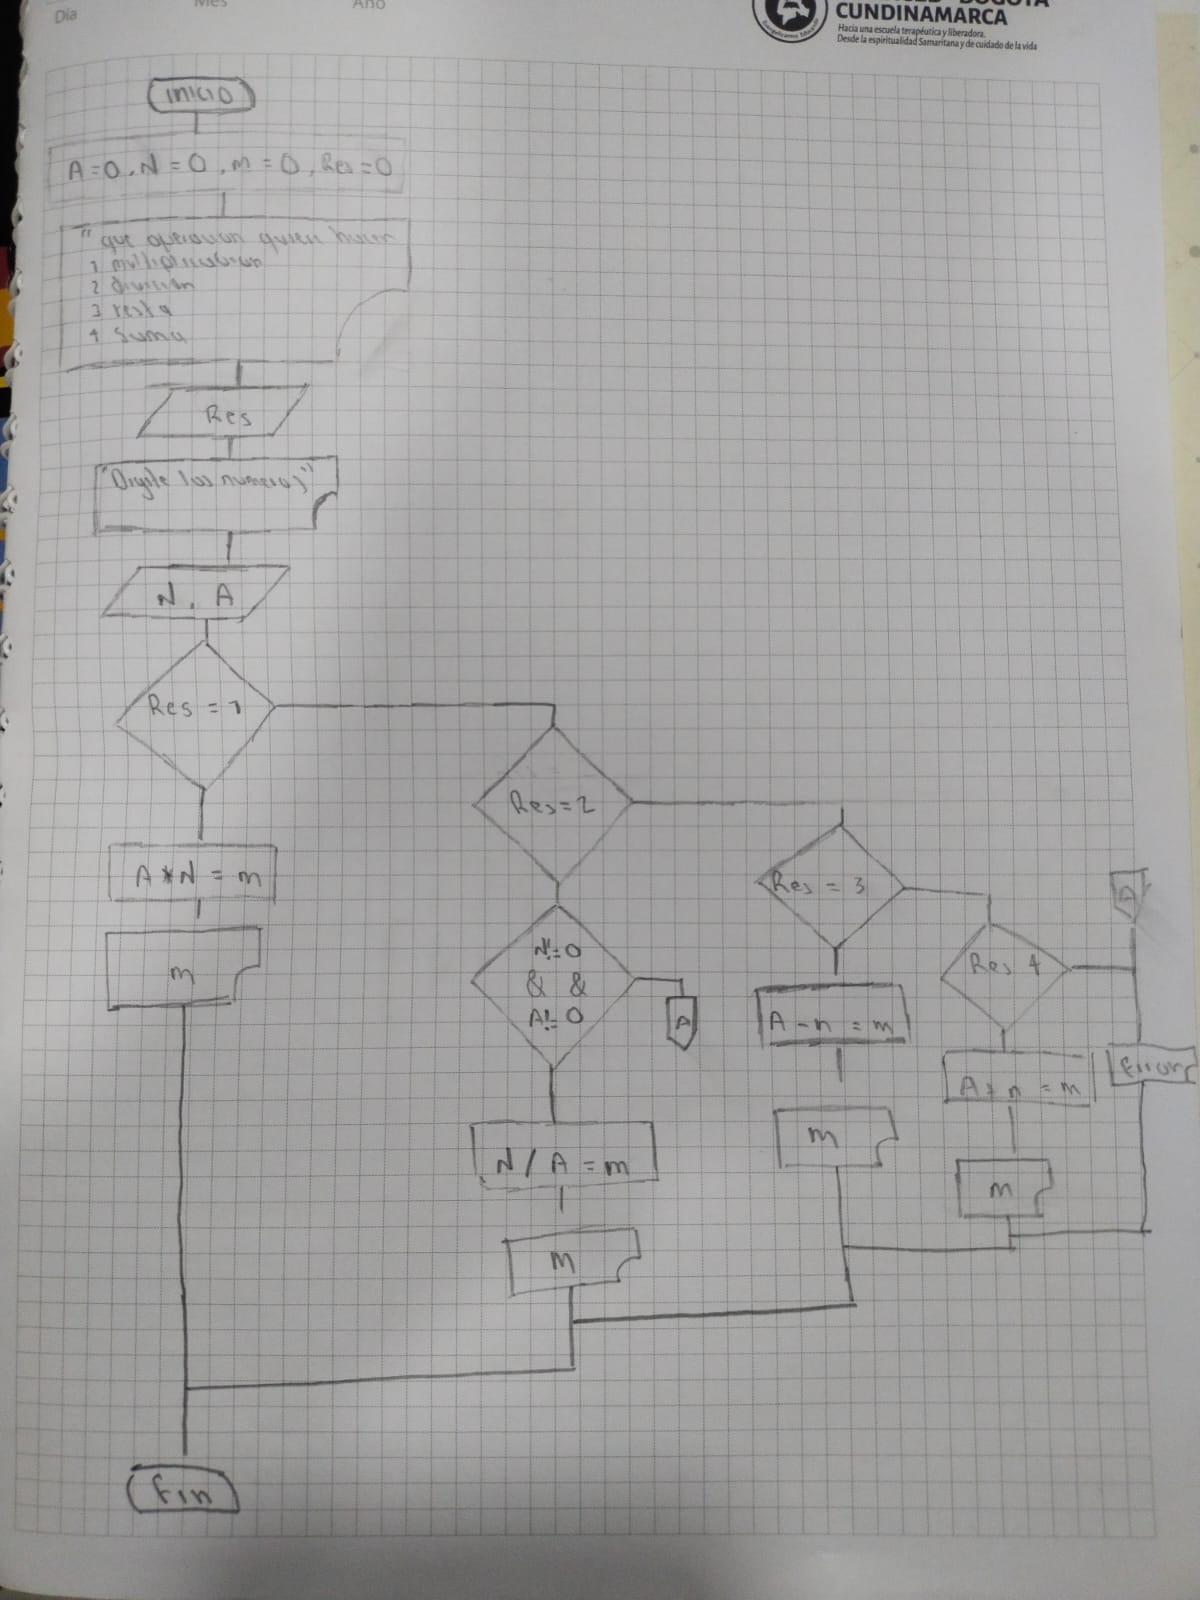 Día Mes Año
BOGOTÁ
CUNDINAMARCA
Hacia una escuela terapéutica y liberadora.
Desde la espiritualidad Samaritana y de cuidado de la vida
inicio
A=0, N=0, m=0, Res=0
"que operacion quieu hacer
1 multiplicacion
2 division
3 resta
4 Suma
Res
"Digite los numeros"
N, A
Res = 1
Res=2
Res = 3
Res 4
A*N = m
m
N!=0
& &
A!=0
A - n = m
A + n = m
Error
N / A = m
m
m
m
Fin